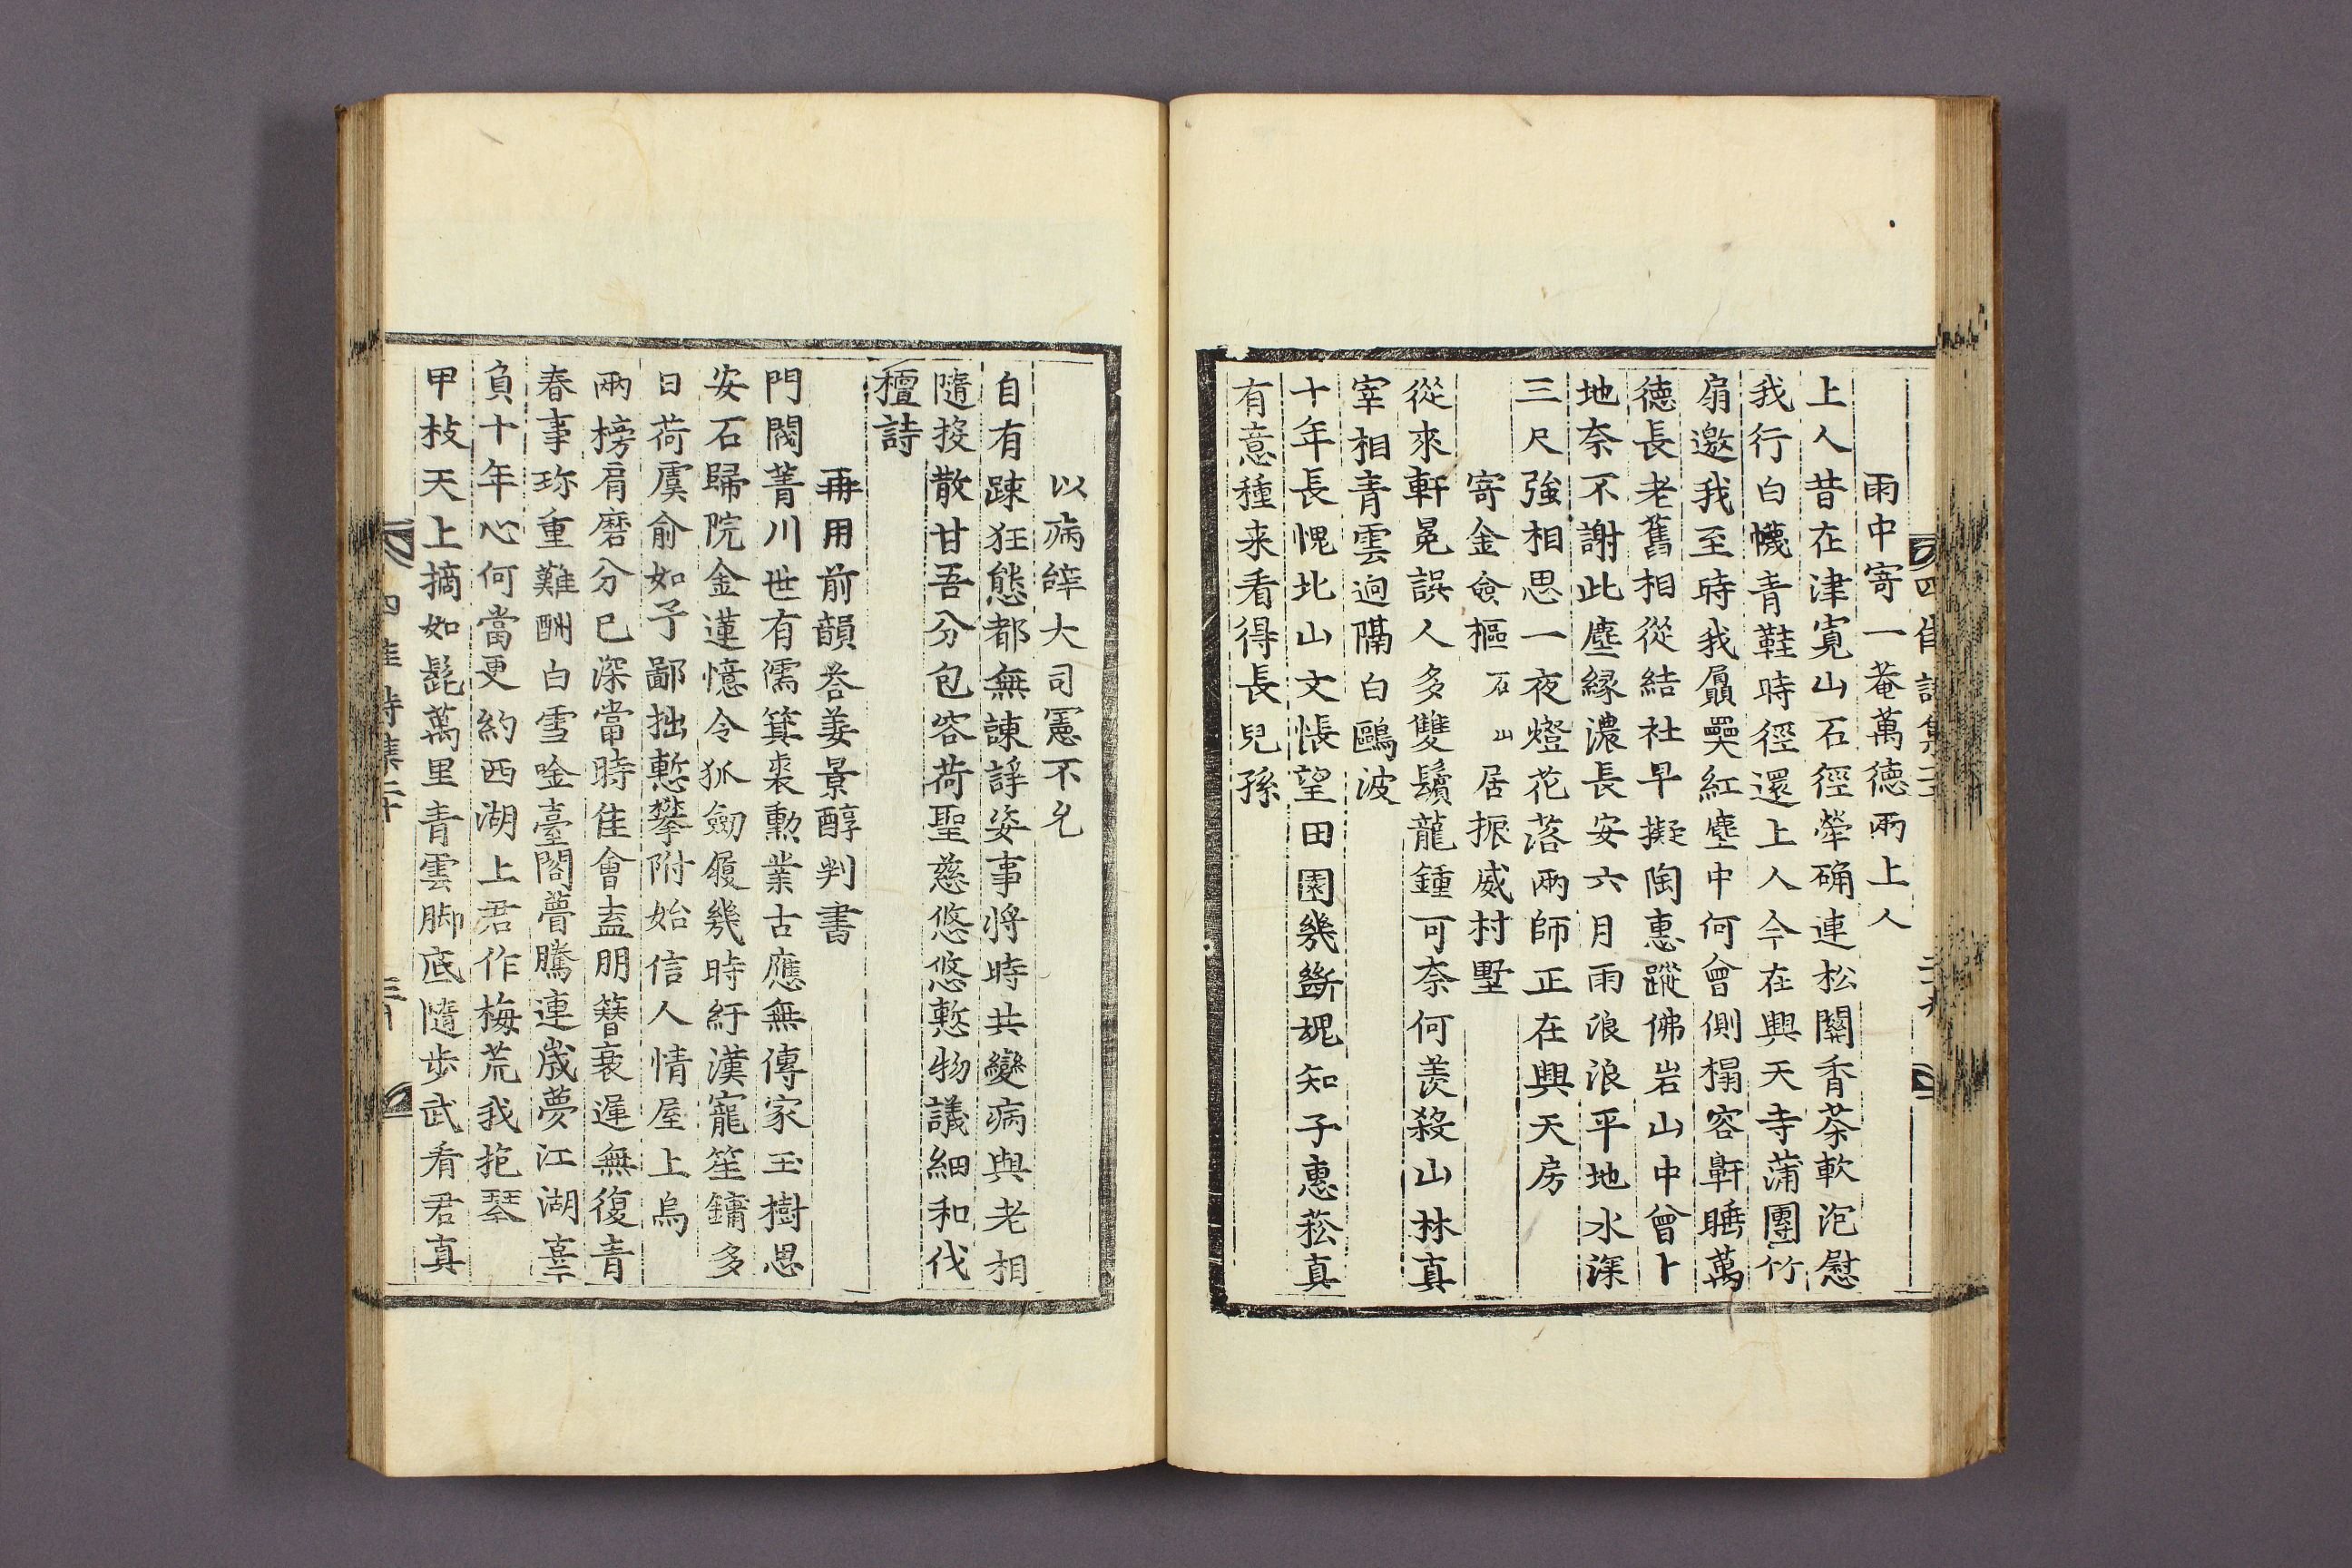 雨中寄一菴萬德兩上人
上人昔在津寬山石徑犖确連松關香茶軟泡慰
我行白幭青鞋時徑還上人今在興天寺蒲團竹
扇邀我至時我贔屭紅塵中何曾側榻容鼾睡萬
德長老舊相從結社早擬陶惠蹤佛岩山中曾卜
地奈不謝此塵緣濃長安六月雨浪浪平地水深
三尺強相思一夜燈花落兩師正在興天房
寄金僉樞石山居振威村墅
從來軒冕誤人多雙鬢龍鍾可奈何羨殺山林真
宰相青雲逈隔白鷗波
十年長愧北山文悵望田園幾斷䰟知子惠菘真
有意種来看得長兒孫
以病辭大司憲不允
自有踈狂態都無諫諍姿事將時共變病與老相
隨投散甘吾分包容荷聖慈悠悠慙物議細和伐
檀詩
再用前韻答姜景醇判書
門閥菁川世有濡箕裘勳業古應無傳家玉樹思
安石歸院金蓮憶令狐劒履幾時紆漢寵笙鏞多
日荷虞俞如予鄙拙慙攀附始信人情屋上烏
兩榜肩磨分已深當時佳會盍朋簪衰遲無復青
春事珎重難酬白雪唫臺閣瞢騰連歲夢江湖辜
負十年心何當更約西湖上君作梅荒我抱琴
甲枝天上摘如髭萬里青雲脚底隨步武看君真